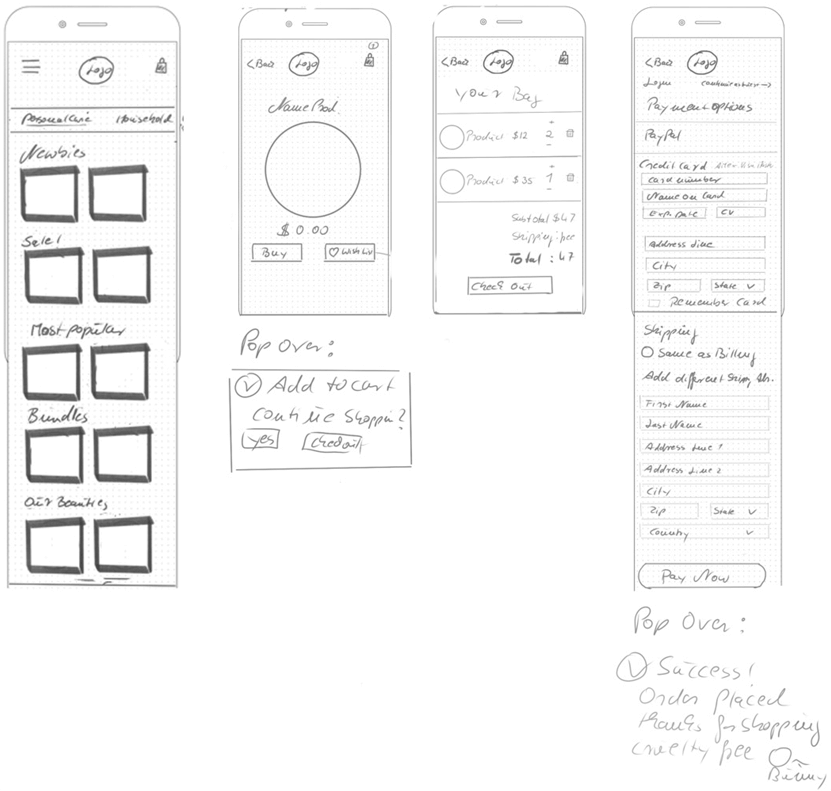 Logo
Personal Care Household
Newbies
Sale!
Most popular
Bundles
Our Beauties
< Back Logo (1)
Name Prod.
$ 0.00
Buy ♡ Wish List
Pop Over:
Add to cart
continue shopping?
yes checkout
< Back Logo
Your Bag
Product $12 2
Product $35 1
Subtotal $47
Shipping: free
Total: 47
Check Out
< Back Logo
Login →
Payment options
PayPal
Credit Card
card number
Name on Card
Exp. Date CV
Address Line
City
Zip State ∨
Remember Card
Shipping
Same as Billing
Add different
First Name
Last Name
Address Line 1
Address Line 2
City
Zip State ∨
Country ∨
Pay Now
Pop Over:
Success!
Order placed
thanks for shopping
cruelty free
Bunny